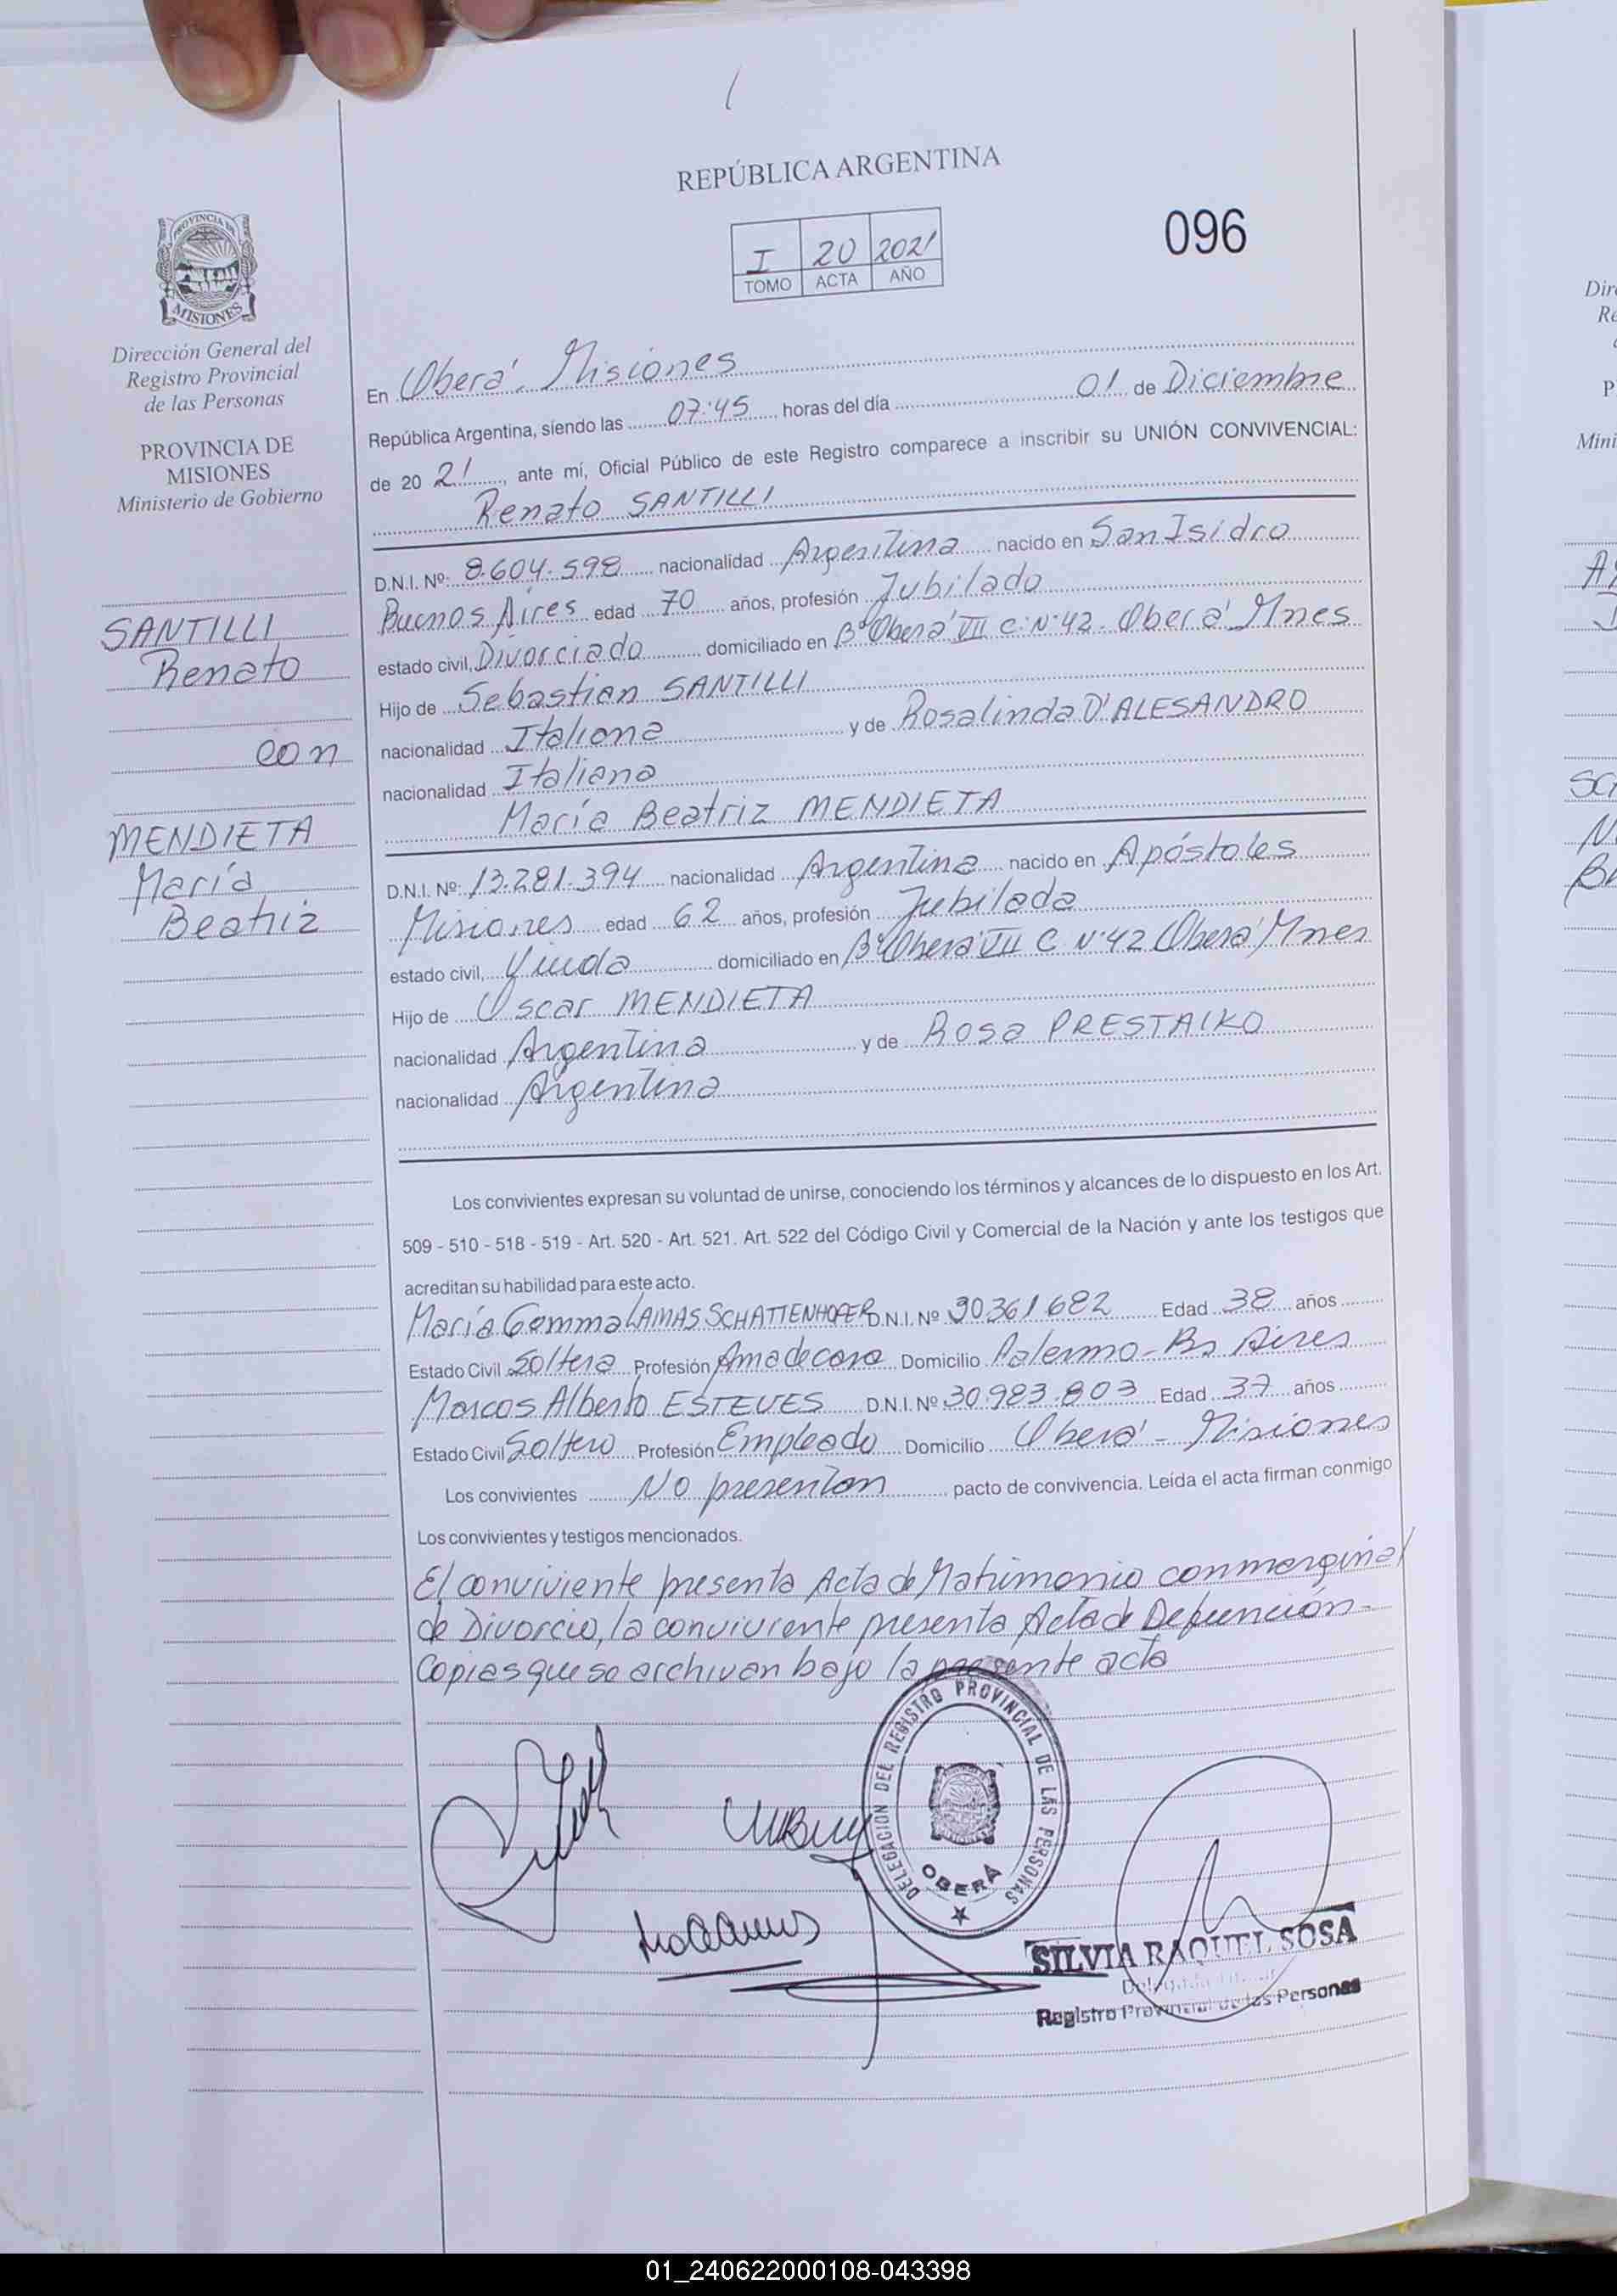 REPÚBLICA ARGENTINA
096
I 20 2021
TOMO ACTA AÑO
PROVINCIA DE
MISIONES
Dirección General del
Registro Provincial
de las Personas
PROVINCIA DE
MISIONES
Ministerio de Gobierno
SANTILLI
Renato
con
MENDIETA
María
Beatriz
En Oberá, Misiones
República Argentina, siendo las 07:45, horas del día 01 de Diciembre
de 20 21, ante mí, Oficial Público de este Registro comparece a inscribir su UNIÓN CONVIVENCIAL:
Renato SANTILLI
D.N.I. Nº: 8.604.598 nacionalidad Argentina nacido en San Isidro
Buenos Aires edad 70 años, profesión Jubilado
estado civil, Divorciado domiciliado en Bº Oberá VII C. Nº 42. Oberá Mnes
Hijo de Sebastian SANTILLI
nacionalidad Italiana y de Rosalinda D'ALESANDRO
nacionalidad Italiana
María Beatriz MENDIETA
D.N.I. Nº: 13.281.394 nacionalidad Argentina nacido en Apóstoles
Misiones edad 62 años, profesión Jubilada
estado civil, Viuda domiciliado en Bº Oberá VII C Nº 42 Oberá Mnes
Hijo de Oscar MENDIETA
nacionalidad Argentina y de Rosa PRESTAIKO
nacionalidad Argentina
Los convivientes expresan su voluntad de unirse, conociendo los términos y alcances de lo dispuesto en los Art.
509 - 510 - 518 - 519 - Art. 520 - Art. 521. Art. 522 del Código Civil y Comercial de la Nación y ante los testigos que
acreditan su habilidad para este acto.
María Gemma LAMAS SCHATTENHOFER D.N.I. Nº 30361682 Edad 38 años
Estado Civil Soltera Profesión Ama de casa Domicilio Palermo - Bs Aires
Marcos Alberto ESTEVES D.N.I. Nº 30.983.803 Edad 37 años
Estado Civil Soltero Profesión Empleado Domicilio Oberá - Misiones
Los convivientes No presentan pacto de convivencia. Leída el acta firman conmigo
Los convivientes y testigos mencionados.
El conviviente presenta Acta de Matrimonio con marginal
de Divorcio, la conviviente presenta Acta de Defunción.
Copias que se archivan bajo la presente acta
DELEGACION DEL REGISTRO PROVINCIAL DE LAS PERSONAS
OBERÁ
SILVIA RAQUEL SOSA
Registro Provincial de las Personas
01_240622000108-043398